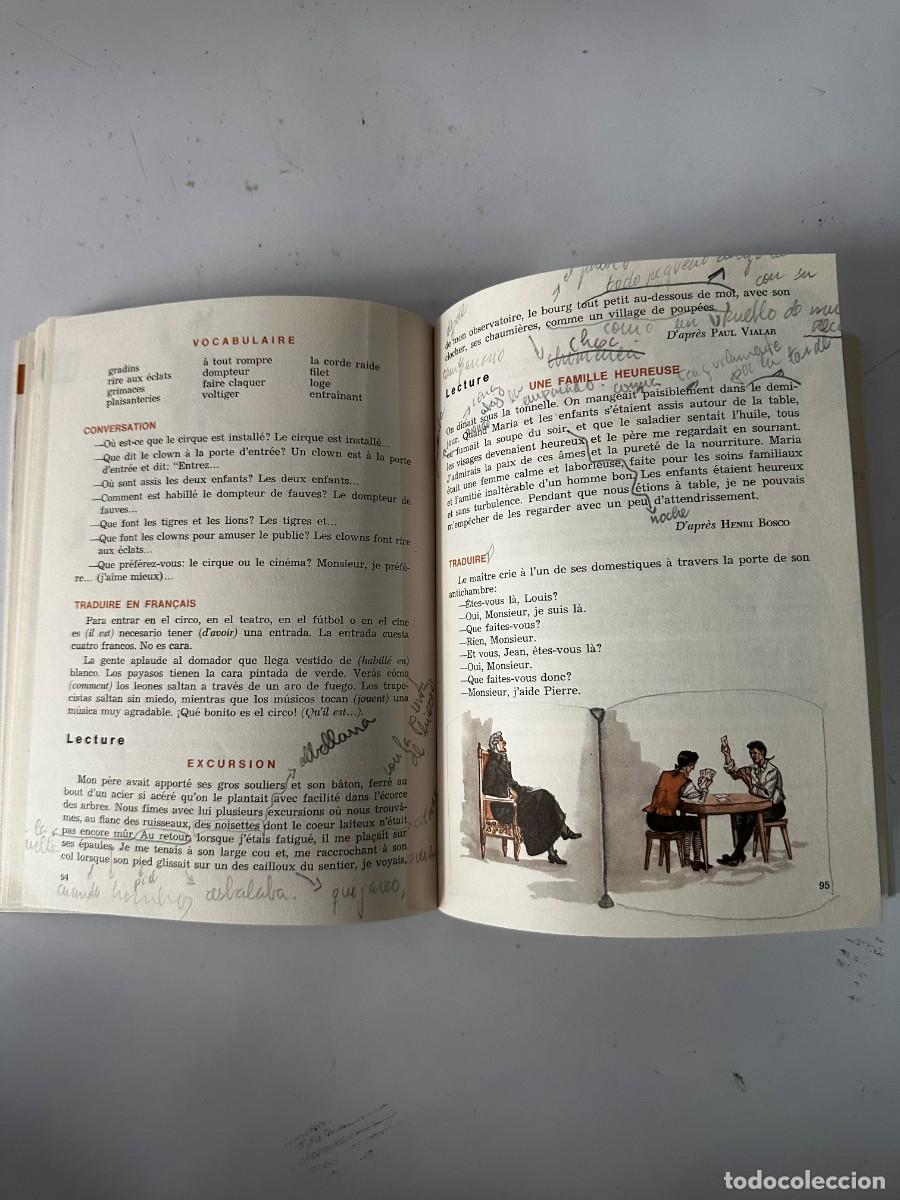 VOCABULAIRE
gradins
rire aux éclats
grimaces
plaisanteries
à tout rompre
dompteur
faire claquer
voltiger
la corde raide
filet
loge
entraînant
CONVERSATION
—Où est-ce que le cirque est installé? Le cirque est installé...
—Que dit le clown à la porte d'entrée? Un clown est à la porte
d'entrée et dit: "Entrez...
—Où sont assis les deux enfants? Les deux enfants...
—Comment est habillé le dompteur de fauves? Le dompteur de
fauves...
—Que font les tigres et les lions? Les tigres et...
—Que font les clowns pour amuser le public? Les clowns font rire
aux éclats...
—Que préférez-vous: le cirque ou le cinéma? Monsieur, je préfè-
re... (j'aime mieux)...
TRADUIRE EN FRANÇAIS
Para entrar en el circo, en el teatro, en el fútbol o en el cine
es (il est) necesario tener (d'avoir) una entrada. La entrada cuesta
cuatro francos. No es cara.
La gente aplaude al domador que llega vestido de (habillé en)
blanco. Los payasos tienen la cara pintada de verde. Verás cómo
(comment) los leones saltan a través de un aro de fuego. Los trape-
cistas saltan sin miedo, mientras que los músicos tocan (jouent) una
música muy agradable. ¡Qué bonito es el circo! (Qu'il est...).
Lecture
EXCURSION
Mon père avait apporté ses gros souliers et son bâton, ferré au
bout d'un acier si acéré qu'on le plantait avec facilité dans l'écorce
des arbres. Nous fîmes avec lui plusieurs excursions où nous trouvâ-
mes, au flanc des ruisseaux, des noisettes dont le coeur laiteux n'était
pas encore mûr. Au retour, lorsque j'étais fatigué, il me plaçait sur
ses épaules. Je me tenais à son large cou et, me racerochant à son
col lorsque son pied glissait sur un des cailloux du sentier, je voyais,
94
cuando
que jarro,
de mon observatoire, le bourg tout petit au-dessous de moi, avec son
clocher, ses chaumières, comme un village de poupées.
D'après PAUL VIALAR
todo pequeño
con su
como un
Lecture
UNE FAMILLE HEUREUSE
On dînait sous la tonnelle. On mangeait paisiblement dans le demi-
jour. Quand Maria et les enfants s'étaient assis autour de la table,
que fumait la soupe du soir, et que le saladier sentait l'huile, tous
les visages devenaient heureux et le père me regardait en souriant.
J'admirais la paix de ces âmes et la pureté de la nourriture. Maria
était une femme calme et laborieuse, faite pour les soins familiaux
et l'amitié inaltérable d'un homme bon. Les enfants étaient heureux
et sans turbulence. Pendant que nous étions à table, je ne pouvais
m'empêcher de les regarder avec un peu d'attendrissement.
noche
D'après HENRI BOSCO
TRADUIRE
Le maître crie à l'un de ses domestiques à travers la porte de son
antichambre:
—Êtes-vous là, Louis?
—Oui, Monsieur, je suis là.
—Que faites-vous?
—Rien, Monsieur.
—Et vous, Jean, êtes-vous là?
—Oui, Monsieur.
—Que faites-vous donc?
—Monsieur, j'aide Pierre.
95
todocoleccion